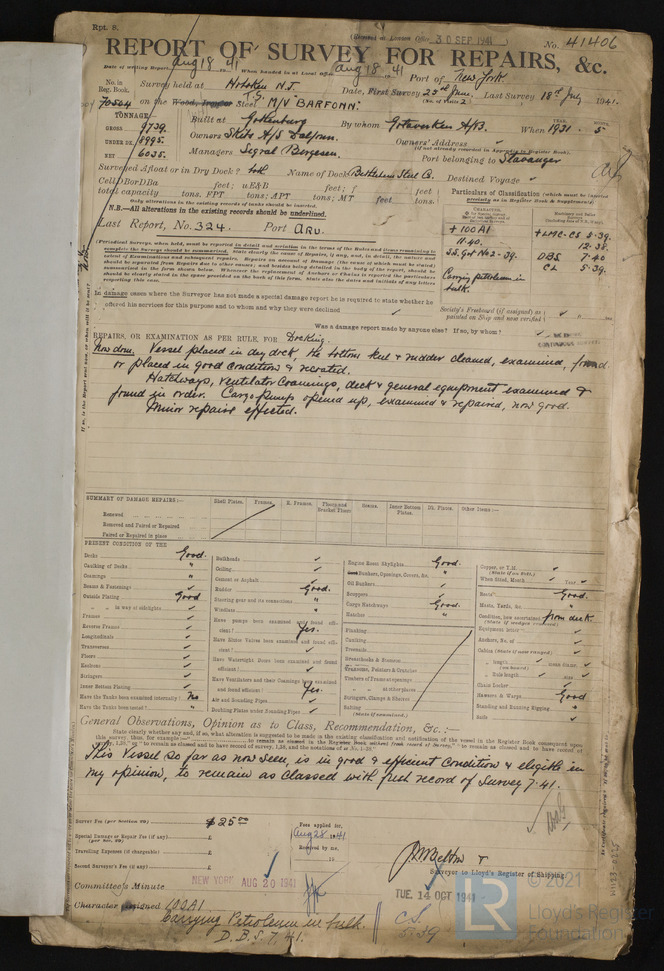 Rpt. 8.
(Received at London Office 30 SEP 1941)
No. 41406
REPORT OF SURVEY FOR REPAIRS, &c.
Date of writing Report Aug 18 1941 When handed in at Local Office Aug 18 1941 Port of New York
No. in Reg. Book. Survey held at Hoboken N.J. Date, First Survey 23rd June, Last Survey 18th July 1941.
(No. of Visits 2)
70504 on the Steel T.S. M/V "BARFONN"
TONNAGE
GROSS 9739.
UNDER DK. 8995.
NET 6035.
Built at Gothenburg By whom Gotaverken A/B. When 1931 - 5
YEAR. MONTH.
Owners Skibs A/S Dalfonn. Owners' Address
(If not already recorded in Appendix to Register Book)
Managers Sigval Bergesen. Port belonging to Stavanger
Surveyed Afloat or in Dry Dock? both Name of Dock Bethlehem Steel Co. Destined Voyage
Cell DBorDBa feet; uE&B feet; f feet
total capacity tons. FPT tons; APT tons; MT feet tons.
Only alterations in the existing records of tanks should be inserted.
N.B.—All alterations in the existing records should be underlined.
Last Report, No. 324. Port Aru.
Particulars of Classification (which must be inserted precisely as in Register Book & Supplements)
CHARACTER.
+ 100A1
11.40.
S.S. Got No2 - 39.
Carrying petroleum in bulk.
+ LMC-CS 5.39.
12.38
DBS 7.40
CL 5.39.
Society's Freeboard (if assigned) as painted on Ship and now verified
In damage cases where the Surveyor has not made a special damage report he is required to state whether he
offered his services for this purpose and to whom and why they were declined
Was a damage report made by anyone else? If so, by whom?
REPAIRS, OR EXAMINATION AS PER RULE, FOR Docking.
Now done. Vessel placed in dry dock, the bottom keel & rudder cleaned, examined, found
or placed in good condition & recoated.
Hatchways, ventilator coamings, deck & general equipment examined &
found in order. Cargo pumps opened up, examined & repaired, now good.
Minor repairs effected.
SUMMARY OF DAMAGE REPAIRS:—
Shell Plates. Frames. R. Frames. Floors and Bracket Floors Beams. Inner Bottom Plates. Dk. Plates. Other Items:—
Renewed
Removed and Faired or Repaired
Faired or Repaired in place
PRESENT CONDITION OF THE
Decks Good.
Caulking of Decks "
Coamings "
Beams & Fastenings
Outside Plating Good
" " in way of sidelights
Frames
Reverse Frames
Longitudinals
Transverses
Floors
Keelsons
Stringers
Inner Bottom Plating
Have the Tanks been examined internally? No
Have the Tanks been tested?
Bulkheads
Ceiling
Cement or Asphalt
Rudder Good.
Steering gear and its connections "
Windlass "
Have pumps been examined and found efficient? Yes.
Have Sluice Valves been examined and found efficient?
Have Watertight Doors been examined and found efficient?
Have Ventilators and their Coamings been examined and found efficient? Yes.
Air and Sounding Pipes
Doubling Plates under Sounding Pipes
Engine Room Skylights Good.
Bunkers, Openings, Covers, &c. "
Oil Bunkers
Scuppers
Cargo Hatchways Good.
Hatches
Planking
Caulking
Treenails
Breasthooks & Stemson
Transoms, Pointers & Crutches
Timbers of Frame at openings
" " at other places
Stringers, Clamps & Shelves
Salting
(State if examined.)
Copper, or Y.M.
When fitted, Month Year
Boats Good.
Masts, Yards, &c. "
Condition, how ascertained from deck.
(State if wedges removed)
Equipment letter
Anchors, No. of
Cables (State if now ranged)
" length mean diamr.
" Rule length size
Chain Locker
Hawsers & Warps Good
Standing and Running Rigging "
Sails
General Observations, Opinion as to Class, Recommendation, &c.:—
This Vessel so far as now seen, is in good & efficient condition & eligible in
my opinion, to remain as classed with fresh record of Survey 7.41.
Survey Fee (per Section 29) $25.00
Special Damage or Repair Fee (if any) £
(per Sec. 29)
Travelling Expenses (if chargeable) £
Second Surveyor's Fee (if any) £
Fees applied for, Aug 28 1941
Received by me,
19
Surveyor to Lloyd's Register of Shipping
Committee's Minute NEW YORK AUG 20 1941
TUE. 14 OCT 1941
Character assigned 100A1
Carrying Petroleum in bulk.
D.B.S. 7.41.
C.S. 5.39
LR
© 2021
Lloyd's Register
Foundation